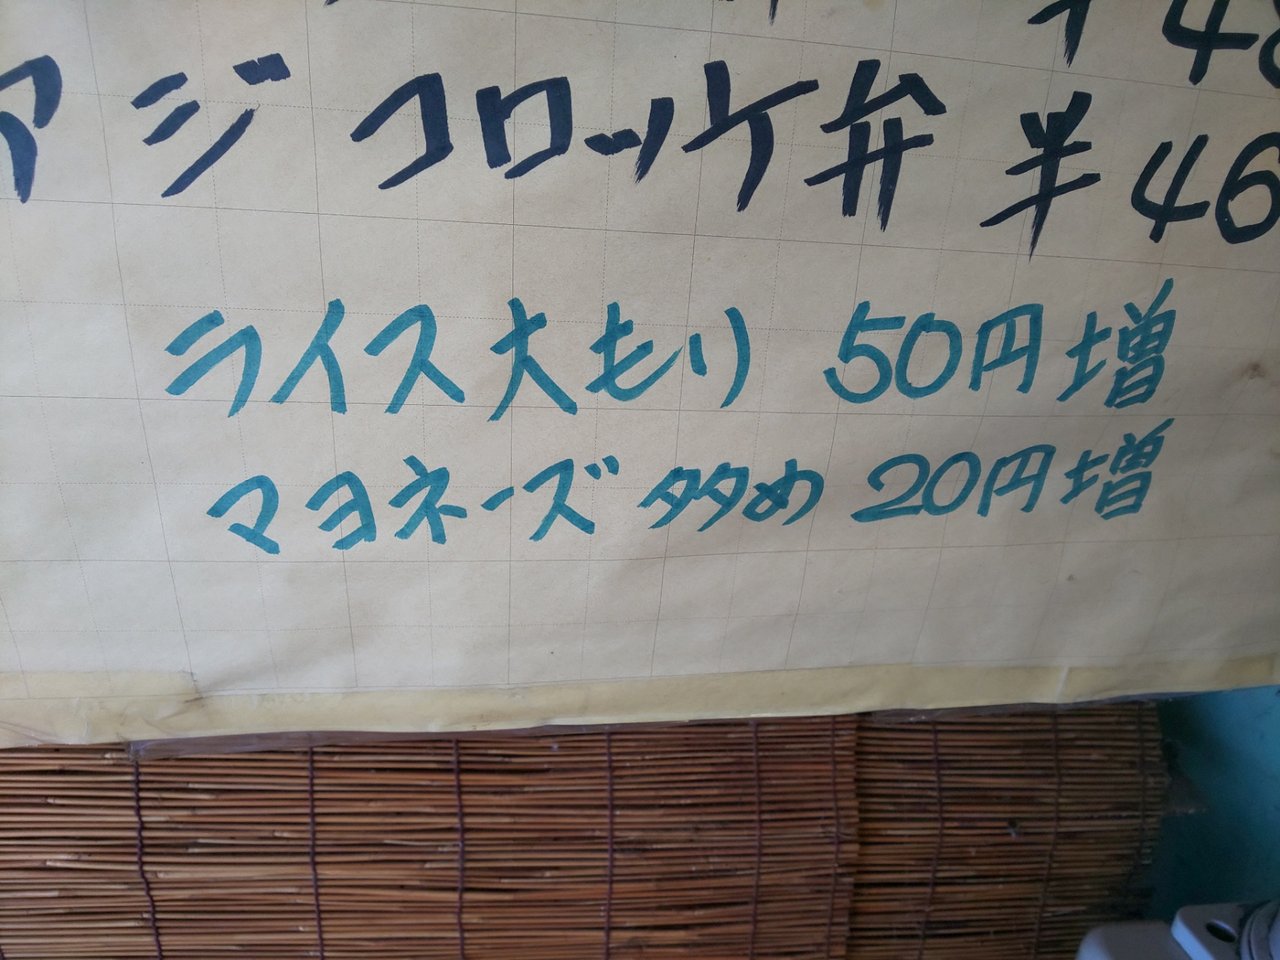 半 48
アジ コロッケ弁 半 46
ライス大もり 50円増
マヨネーズ多め 20円増